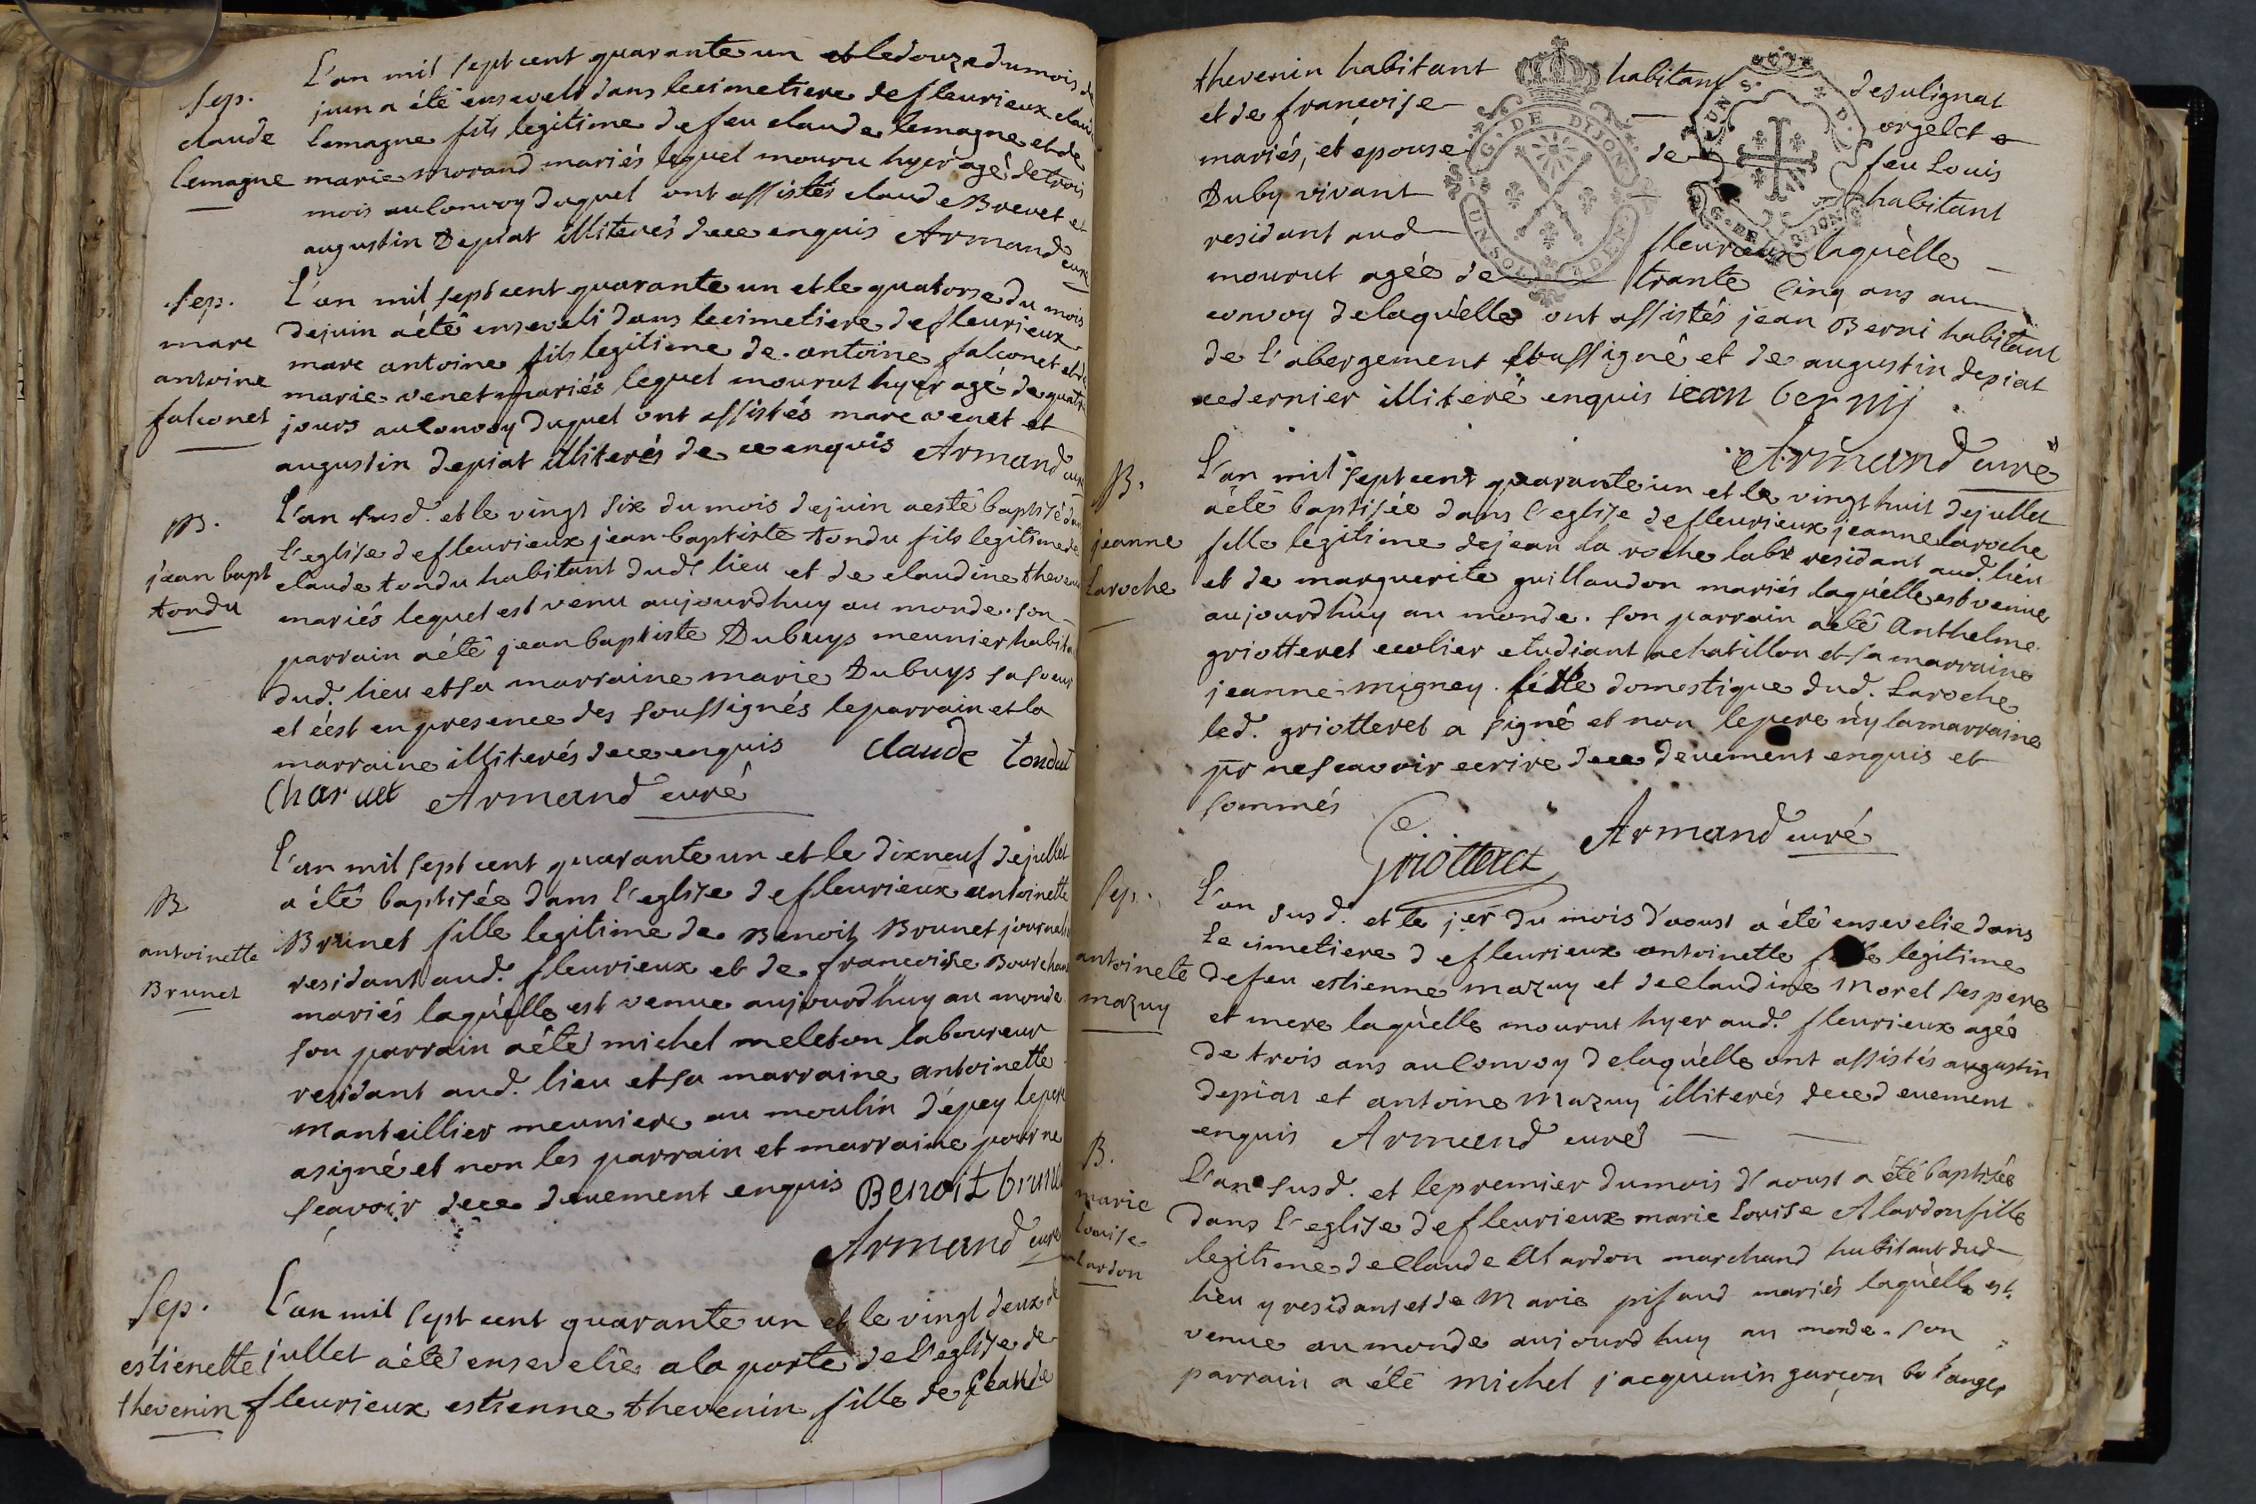 Sep.
claude
lemagne
L'an mil sept cent quarante un et le douze du mois de
juin a été enseveli dans le cimetiere de fleurieux claude
lemagne fils legitime de feu claude lemagne et de
marie morand mariés lequel mouru hyer agé de trois
mois au convoy duquel ont assistés claude Brevet et
augustin Depiat illiterés de ce enquis Armand curé
Sep.
marc
antoine
falconet
L'an mil sept cent quarante un et le quatorse du mois
de juin a été enseveli dans le cimetiere de fleurieux
marc antoine fils legitime de antoine falconet et de
marie venet mariés lequel mourut hyer agé de quatre
jours au convoy duquel ont assistés marc venet et
augustin depiat illiterés de ce enquis Armand curé
B.
jean bapt
tondu
L'an susd. et le vingt six du mois de juin a esté baptisé dans
l'eglise de fleurieux jean baptiste tondu fils legitime de
claude tondu habitant dud lieu et de claudine thevenin
mariés lequel est venu aujourdhuy au monde. son
parrain a été jean baptiste Dubuys meunier habitant
dud. lieu et sa marraine marie Dubuys sa soeur
et c'est en presence des soussignés le parrain et la
marraine illiterés de ce enquis Claude tondut
Charvet Armand curé
B
antoinette
Brunet
L'an mil sept cent quarante un et le dixneuf de jullet
a été baptisée dans l'eglise de fleurieux antoinette
Brunet fille legitime de Benoit Brunet journalier
residant aud. fleurieux et de francoise Bourchand
mariés laquelle est venue aujourdhuy au monde
son parrain a été michel meleton laboureur
residant aud. lieu et sa marraine antoinette
manteillier meuniere au moulin d'épey le pere
a signé et non les parrain et marraine pour ne
scavoir de ce deuement enquis Benoit brunet
Armand curé
Sep.
estienette
thevenin
L'an mil sept cent quarante un et le vingt deux de
jullet a été ensevelie a la porte de l'eglise de
fleurieux estienne thevenin fille de Claude
thevenin habitant habitant de sulignat
et de francoise orgelet
mariés, et epouse de feu Louis
Duby vivant habitant
residant aud fleurieux laquelle
mourut agée de trante cinq ans au
convoy de laquelle ont assistés jean Berni habitant
de l'abergement soussigné et de augustin depiat
ce dernier illiteré enquis jean bernij
Armand curé
G. DE DIJON
UN SOL
G. DE DIJON
B.
jeanne
Laroche
L'an mil sept cent quarante un et le vingt huit de jullet
a été baptisée dans l'eglise de fleurieux jeanne laroche
fille legitime de jean la roche labr residant aud. lieu
et de marguerite guillaudon mariés laquelle est venue
aujourdhuy au monde. son parrain a été Anthelme
griotteret ecolier etudiant a chatillon et sa marraine
jeanne migney fille domestique dud. Laroche
led. griotteret a signé et non le pere ny la marraine
pr ne scavoir ecrire de ce deuement enquis et
sommés
Griotteret Armand curé
Sep.
antoinete
mazuy
L'an susd. et le jer du mois d'aoust a été ensevelie dans
le cimetiere de fleurieux antoinette fille legitime
de feu estienne mazuy et de claudine morel ses pere
et mere laquelle mourut hyer aud. fleurieux agée
de trois ans au convoy de laquelle ont assistés augustin
depiat et antoine Mazuy illiterés de ce deuement
enquis Armand curé
B.
marie
Louise
alardon
L'an susd. et le premier du mois d'aoust a été baptisée
dans l'eglise de fleurieux marie louise Alardon fille
legitime de Claude Alardon marchand habitant dud
lieu y residant et de Marie pisaud mariés laquelle est
venue au monde aujourdhuy au monde. son
parrain a été michel jacquenin garçon bolanger